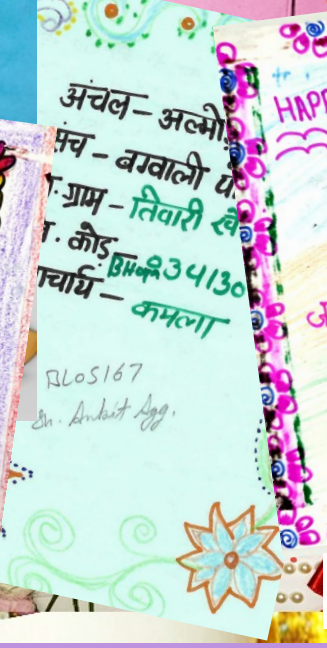 अंचल – अल्मो
संच – बग्वाली
ग्राम – तिवारी
. कोड़
34130
चार्य – कमला
BLOS167
Sh. Ankit Agg.
HAPP